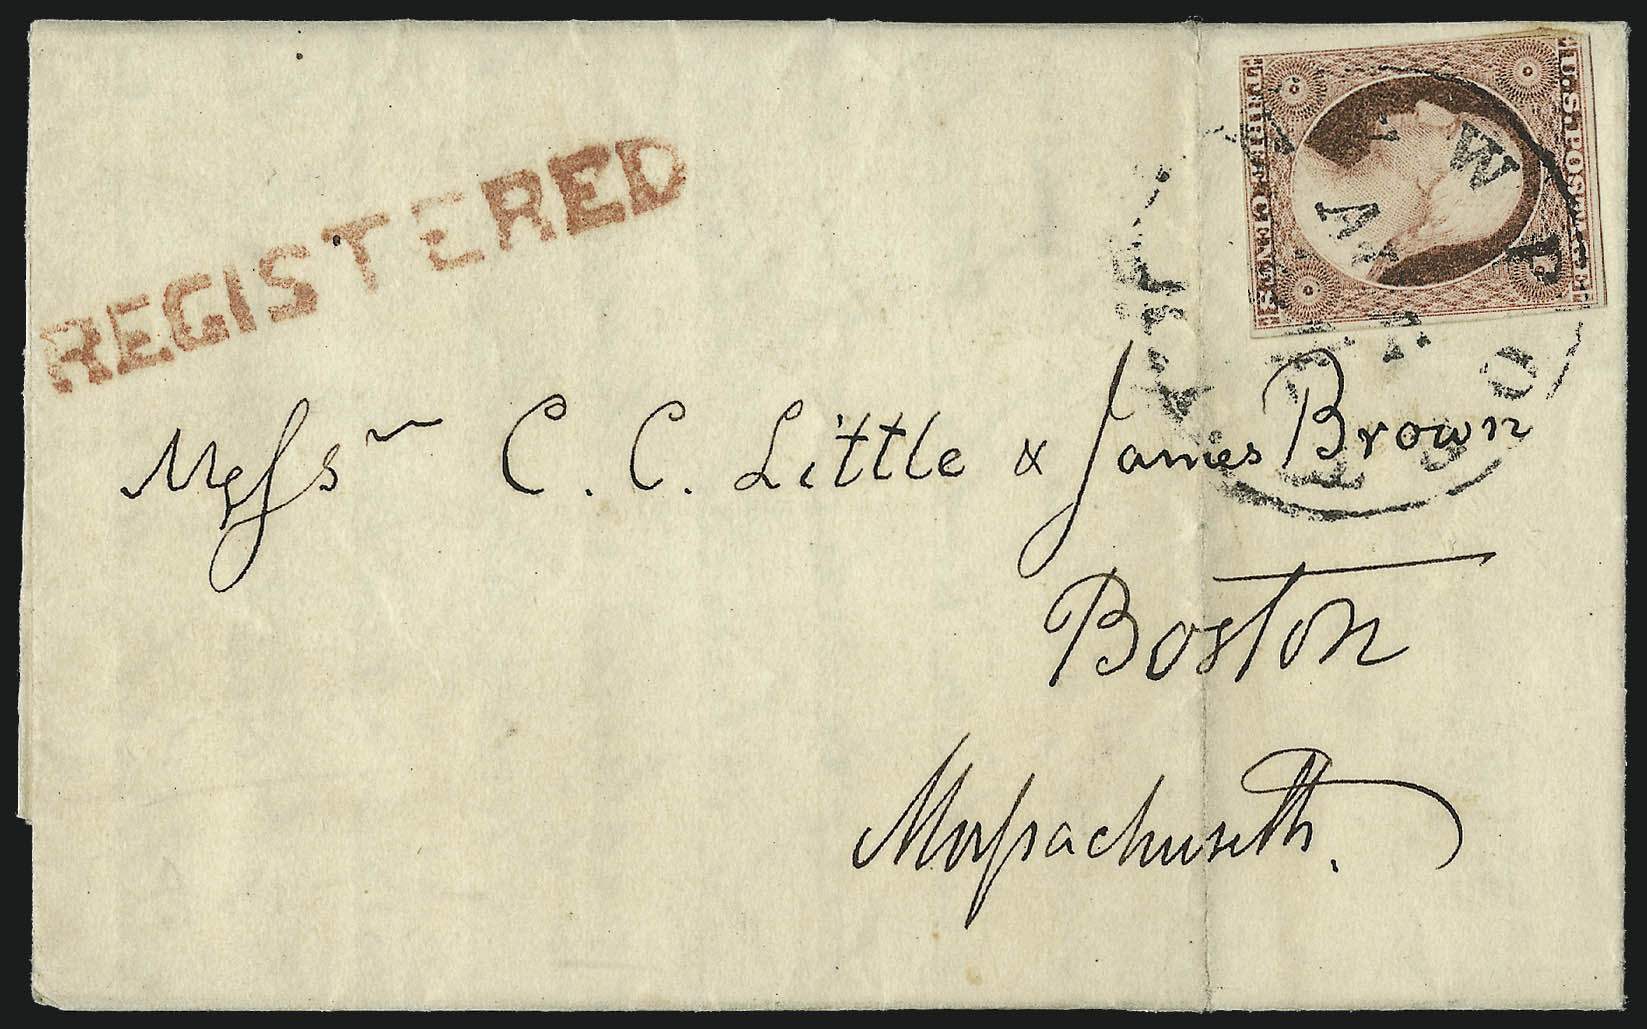 REGISTERED
U.S. POSTAGE
THREE CENTS
Messrs C. C. Little & James Brown
Boston
Massachusetts.